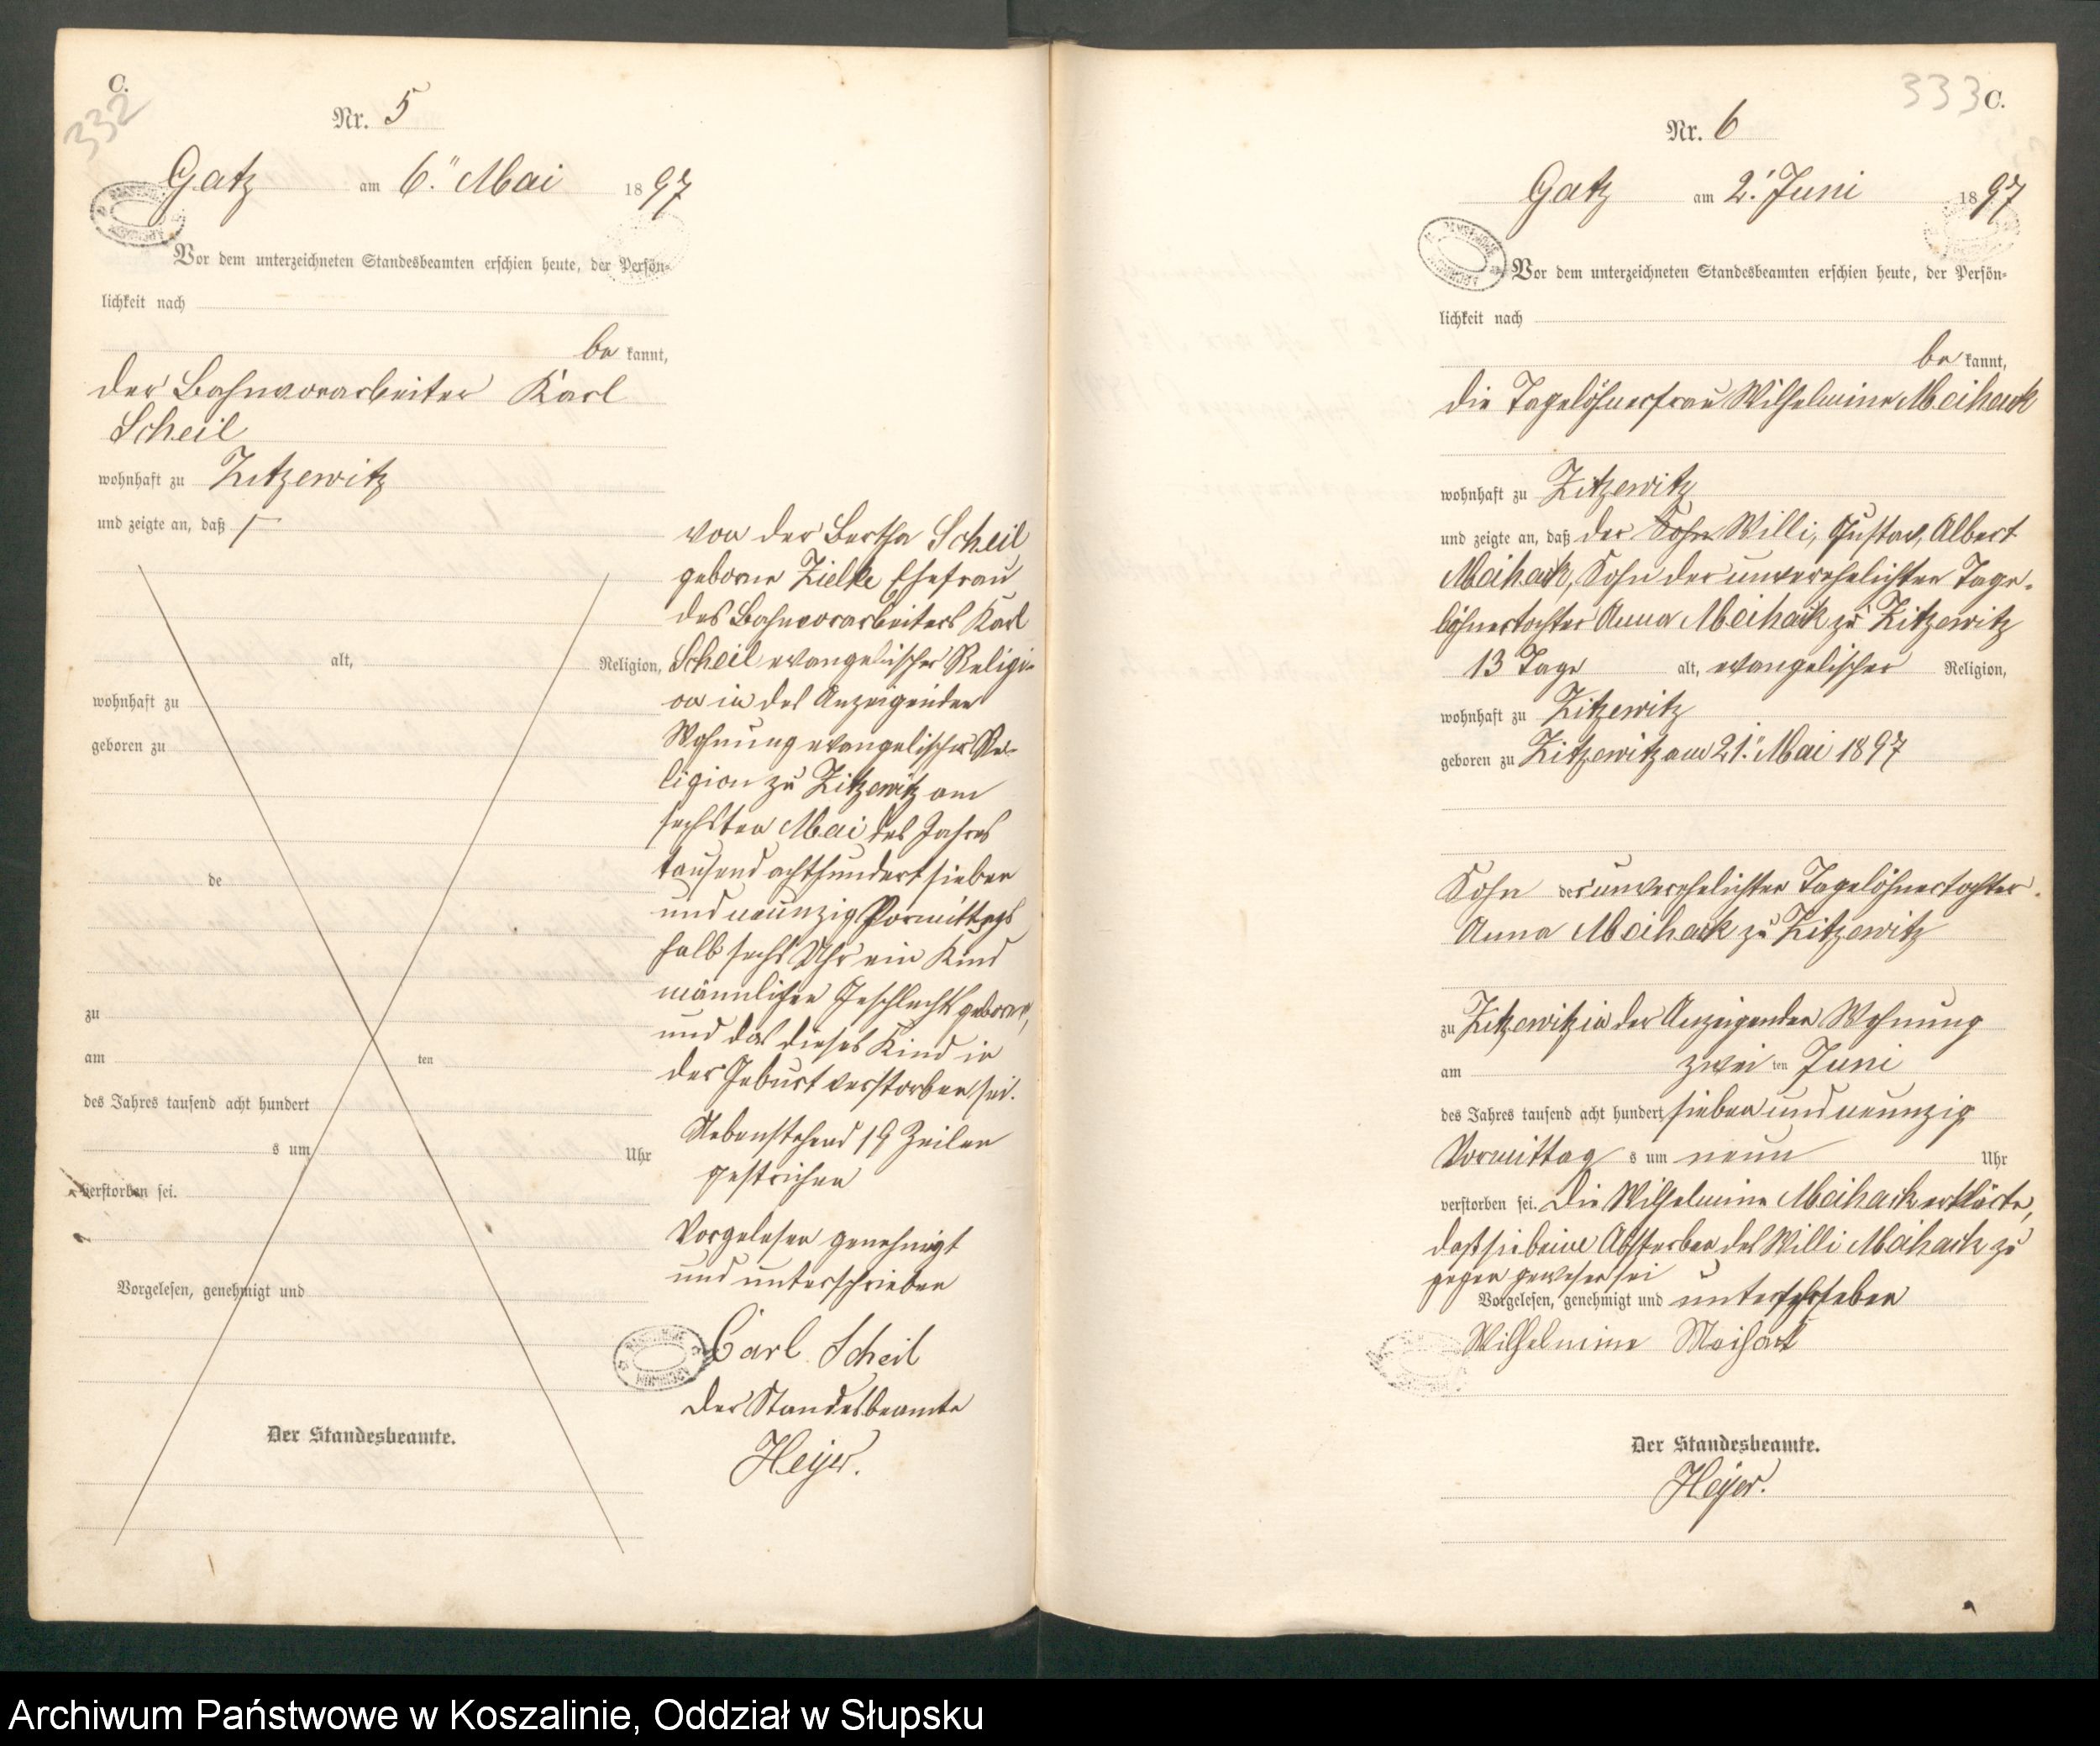 C.
332
Nr. 5
Gatz am 6. Mai 1897
Vor dem unterzeichneten Standesbeamten erschien heute, der Persön-
lichkeit nach
be kannt,
der Bahnvorarbeiter Karl
Scheil
wohnhaft zu Zitzewitz
und zeigte an, daß
alt, Religion,
wohnhaft zu
geboren zu
de
zu
am ten
des Jahres tausend acht hundert
s um Uhr
verstorben sei.
Vorgelesen, genehmigt und
Der Standesbeamte.
von der Bertha Scheil
geborne Zielke Ehefrau
des Bahnvorarbeiters Karl
Scheil evangelischer Religi-
on in des Anzeigenden
Wohnung evangelischer Re-
ligion zu Zitzewitz am
sechsten Mai des Jahres
tausend achthundert sieben
und neunzig Vormittags
halb sechs Uhr ein Kind
männlichen Geschlechts geboren,
und das dieses Kind in
der Geburt verstorben sei.
Nebenstehend 19 Zeilen
gestrichen
Vorgelesen genehmigt
und unterschrieben
Carl Scheil
Der Standesbeamte
Heyer.
333 C.
Nr. 6
Gatz am 2. Juni 1897
Vor dem unterzeichneten Standesbeamten erschien heute, der Persön-
lichkeit nach
be kannt,
die Tagelöhnerfrau Wilhelmine Meihack
wohnhaft zu Zitzewitz
und zeigte an, daß der Sohn Willi, Gustav, Albert
Meihack, Sohn der unverehelichten Tage-
löhnertochter Anna Meihack zu Zitzewitz
13 Tage alt, evangelischer Religion,
wohnhaft zu Zitzewitz
geboren zu Zitzewitz am 21. Mai 1897
Sohn der unverehelichten Tagelöhnertochter
Anna Meihack zu Zitzewitz
zu Zitzewitz in der Anzeigenden Wohnung
am zwei ten Juni
des Jahres tausend acht hundert sieben und neunzig
Vormittag s um neun Uhr
verstorben sei. Die Wilhelmine Meihack erklärte,
daß sie beim Absterben des Willi Meihack zu
gegen gewesen sei
Vorgelesen, genehmigt und unterschrieben
Wilhelmine Meihack
Der Standesbeamte.
Heyer.
Archiwum Państwowe w Koszalinie, Oddział w Słupsku